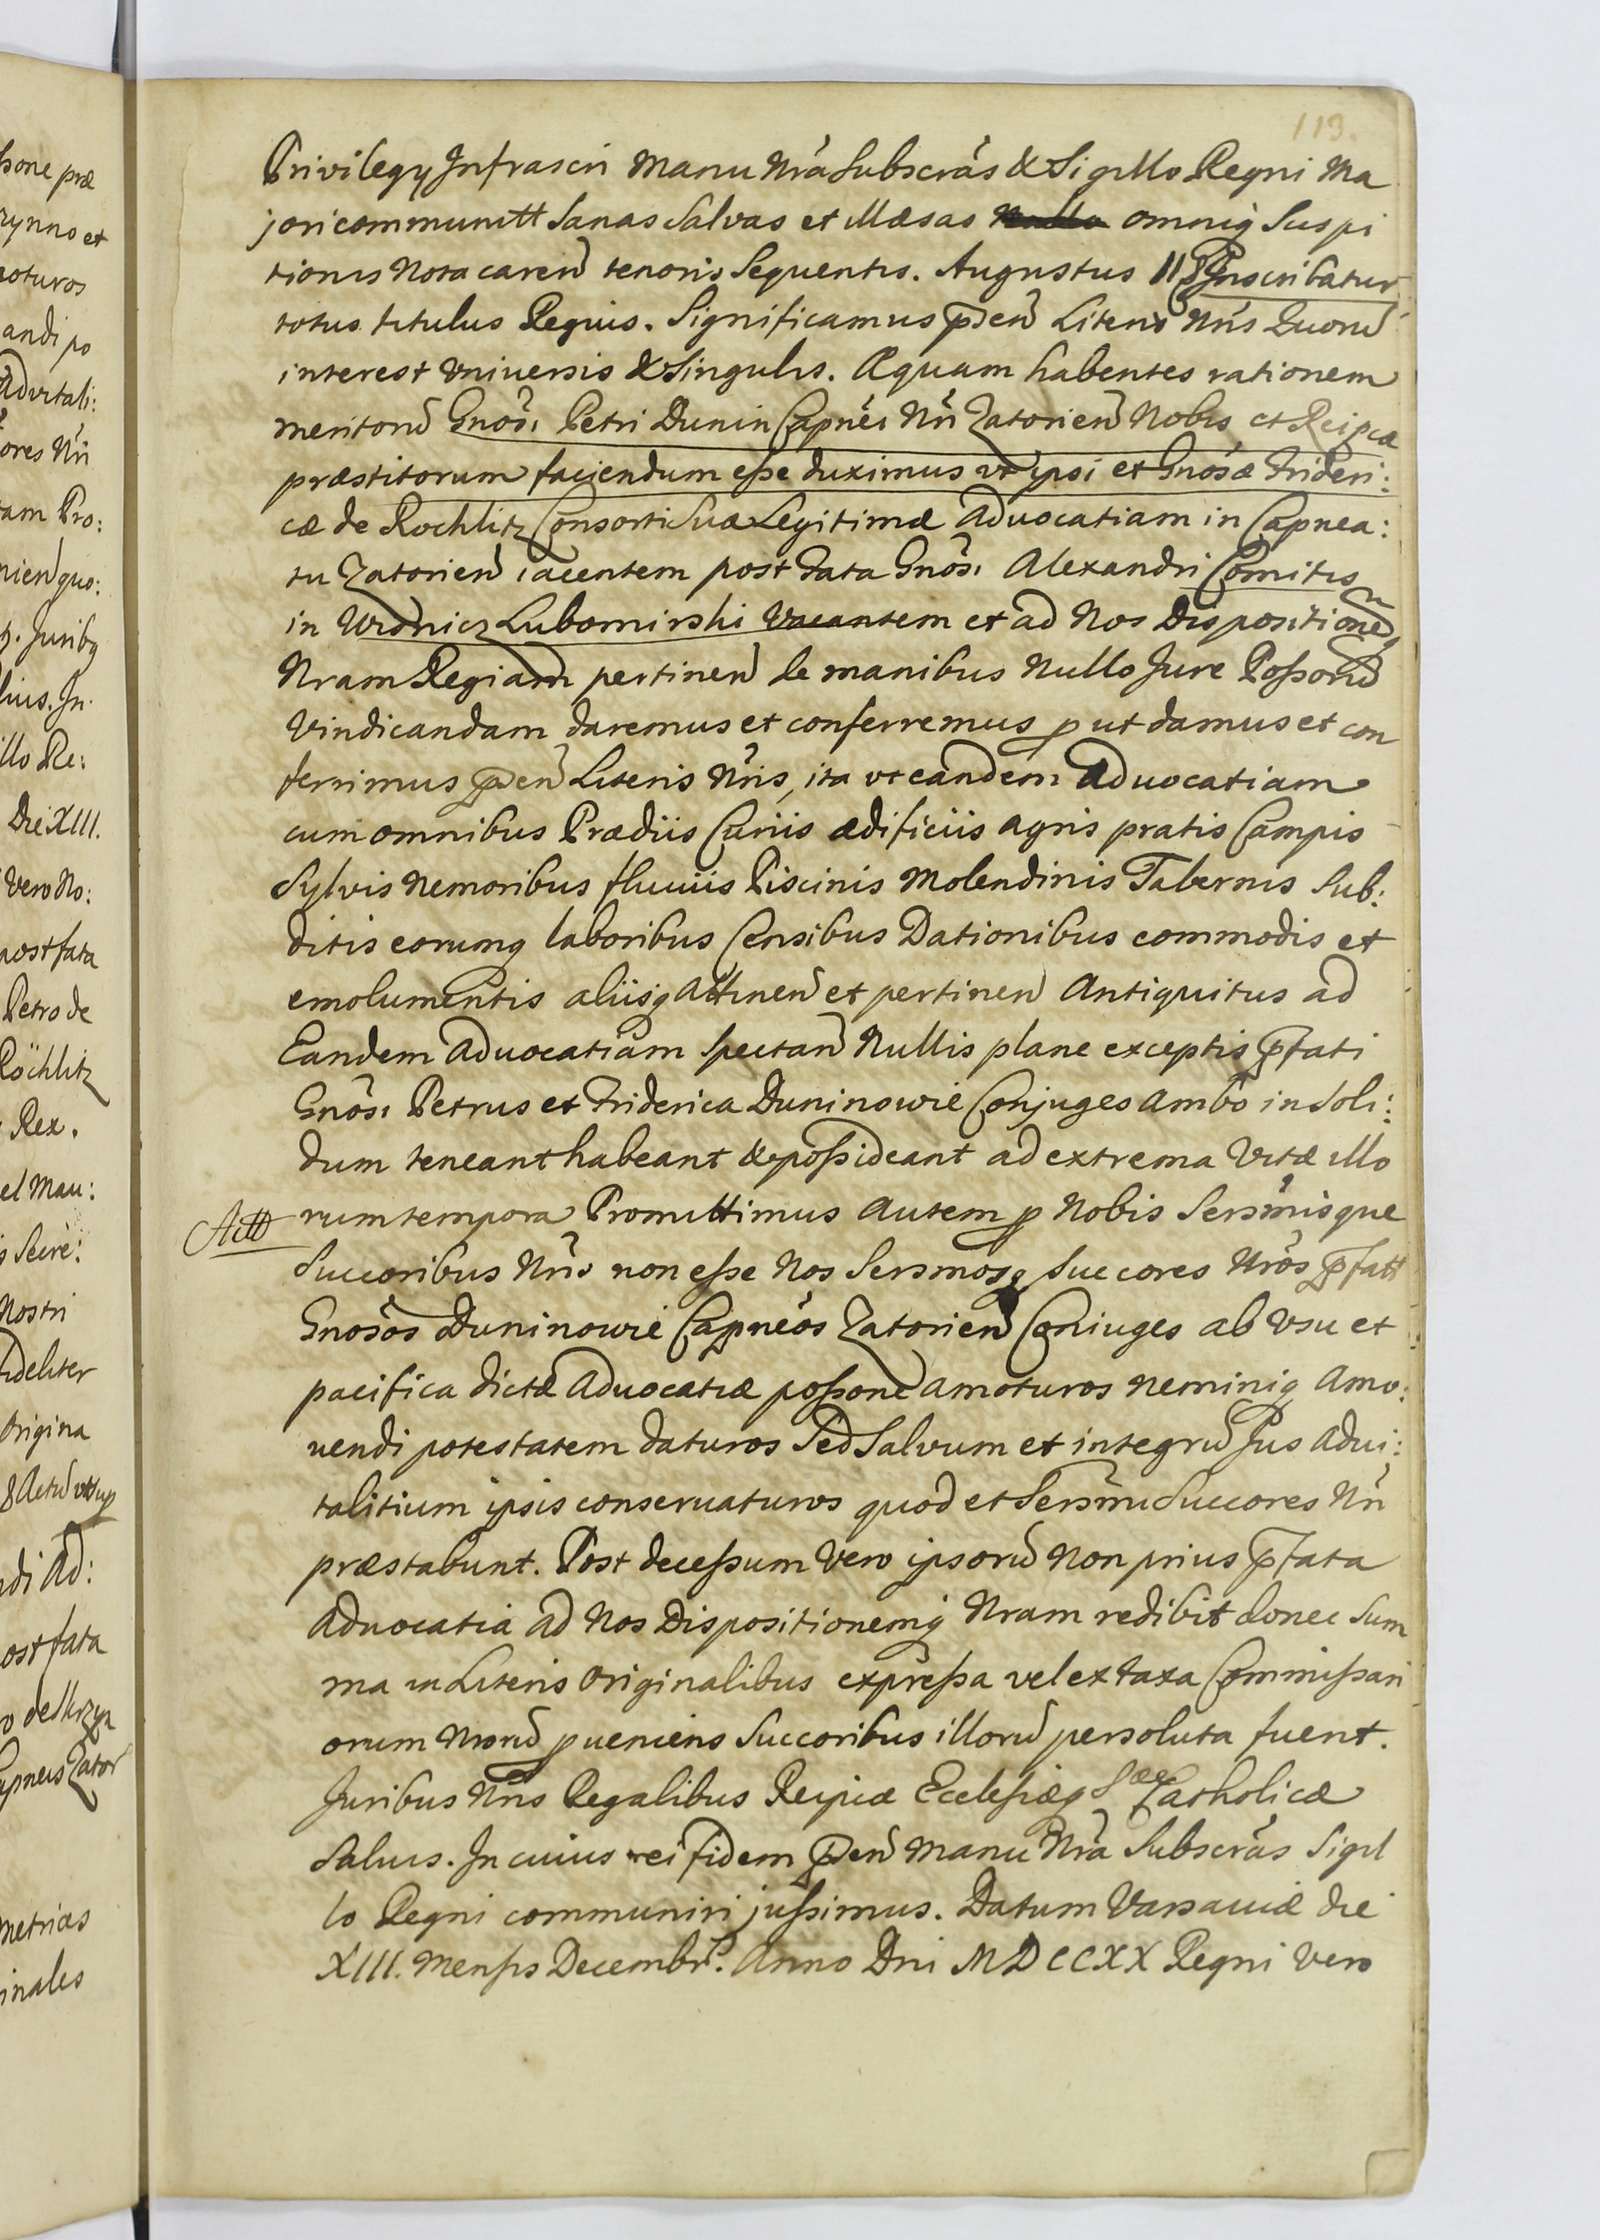 113.
Privilegy Infrascri Manu Nrã Subscrãs & Sigillo Regni Ma
jori communitt Sanas Salvas et illæsas omniq Suspi
tionis Nota caren tenoris Sequentis. Augustus II Inscribatur
totus titulus Regius. Significamus pñ Literis Nris Quoru
interest Universis & Singulis. Æquam habentes rationem
meritoru Gnosi Petri Dunin Capnei Nri Zatorien Nobis et Reipcæ
præstitorum faciendum eße duximus ut ipsi et Gnosæ Frideri:
cæ de Rochlitz Consorti Suæ Legitimæ Aduocatiam in Capnea:
tu Zatorien iacentem post Fata Gnosi Alexandri Comitis
in Wisnicz Lubomirski Vacantem et ad Nos Dispositioneq
Nram Regiam pertinen de manibus Nullo Jure Poßoru
Vindicandam daremus et conferremus put damus et con
ferimus pñ Literis Nris, ita ut eandem Aduocatiam
cum omnibus Prædiis Curiis ædificiis agris pratis Campis
Sylvis Nemoribus fluuiis Piscinis Molendinis Tabernis Sub:
ditis eorumq laboribus Censibus Dationibus commodis et
emolumentis aliisq Attinen et pertinen Antiquitus ad
Eandem Aduocatiam Spectan Nullis plane exceptis pfati
Gnosi Petrus et Friderica Duninowie Conjuges ambo in Soli:
dum teneant habeant & poßideant ad extrema Vitæ illo
rum tempora Promittimus autem p Nobis Sersmisque
Succoribus Nris non eße Nos Sersmosq Succores Nros pfatt
Gnosos Duninowie Capneos Zatorien Coniuges ab Usu et
pacifica dictæ Aduocatiæ poßone amoturos neminiq Amo:
uendi potestatem daturos Sed Salvum et integru Jus Adui:
talitium ipsis conseruaturos quod et Sersmi Succores Nri
præstabunt. Post deceßum Vero ipsoru Non prius pfata
Aduocatia ad Nos Dispositionemq Nram redibit donec Sum
ma in Literis Originalibus expreßa vel ex taxa Commißari
orum Nroru pueniens Succoribus illoru persoluta fuerit.
Juribus Nris Regalibus Reipcæ Ecclesiæq Sæ Catholicæ
Saluis. In cuius rei fidem pñ Manu Nra Subscras Sigil
lo Regni communiri jußimus. Datum Varsauiæ die
XIII. Mensis Decembr. Anno Dni MDCCXX Regni Vero